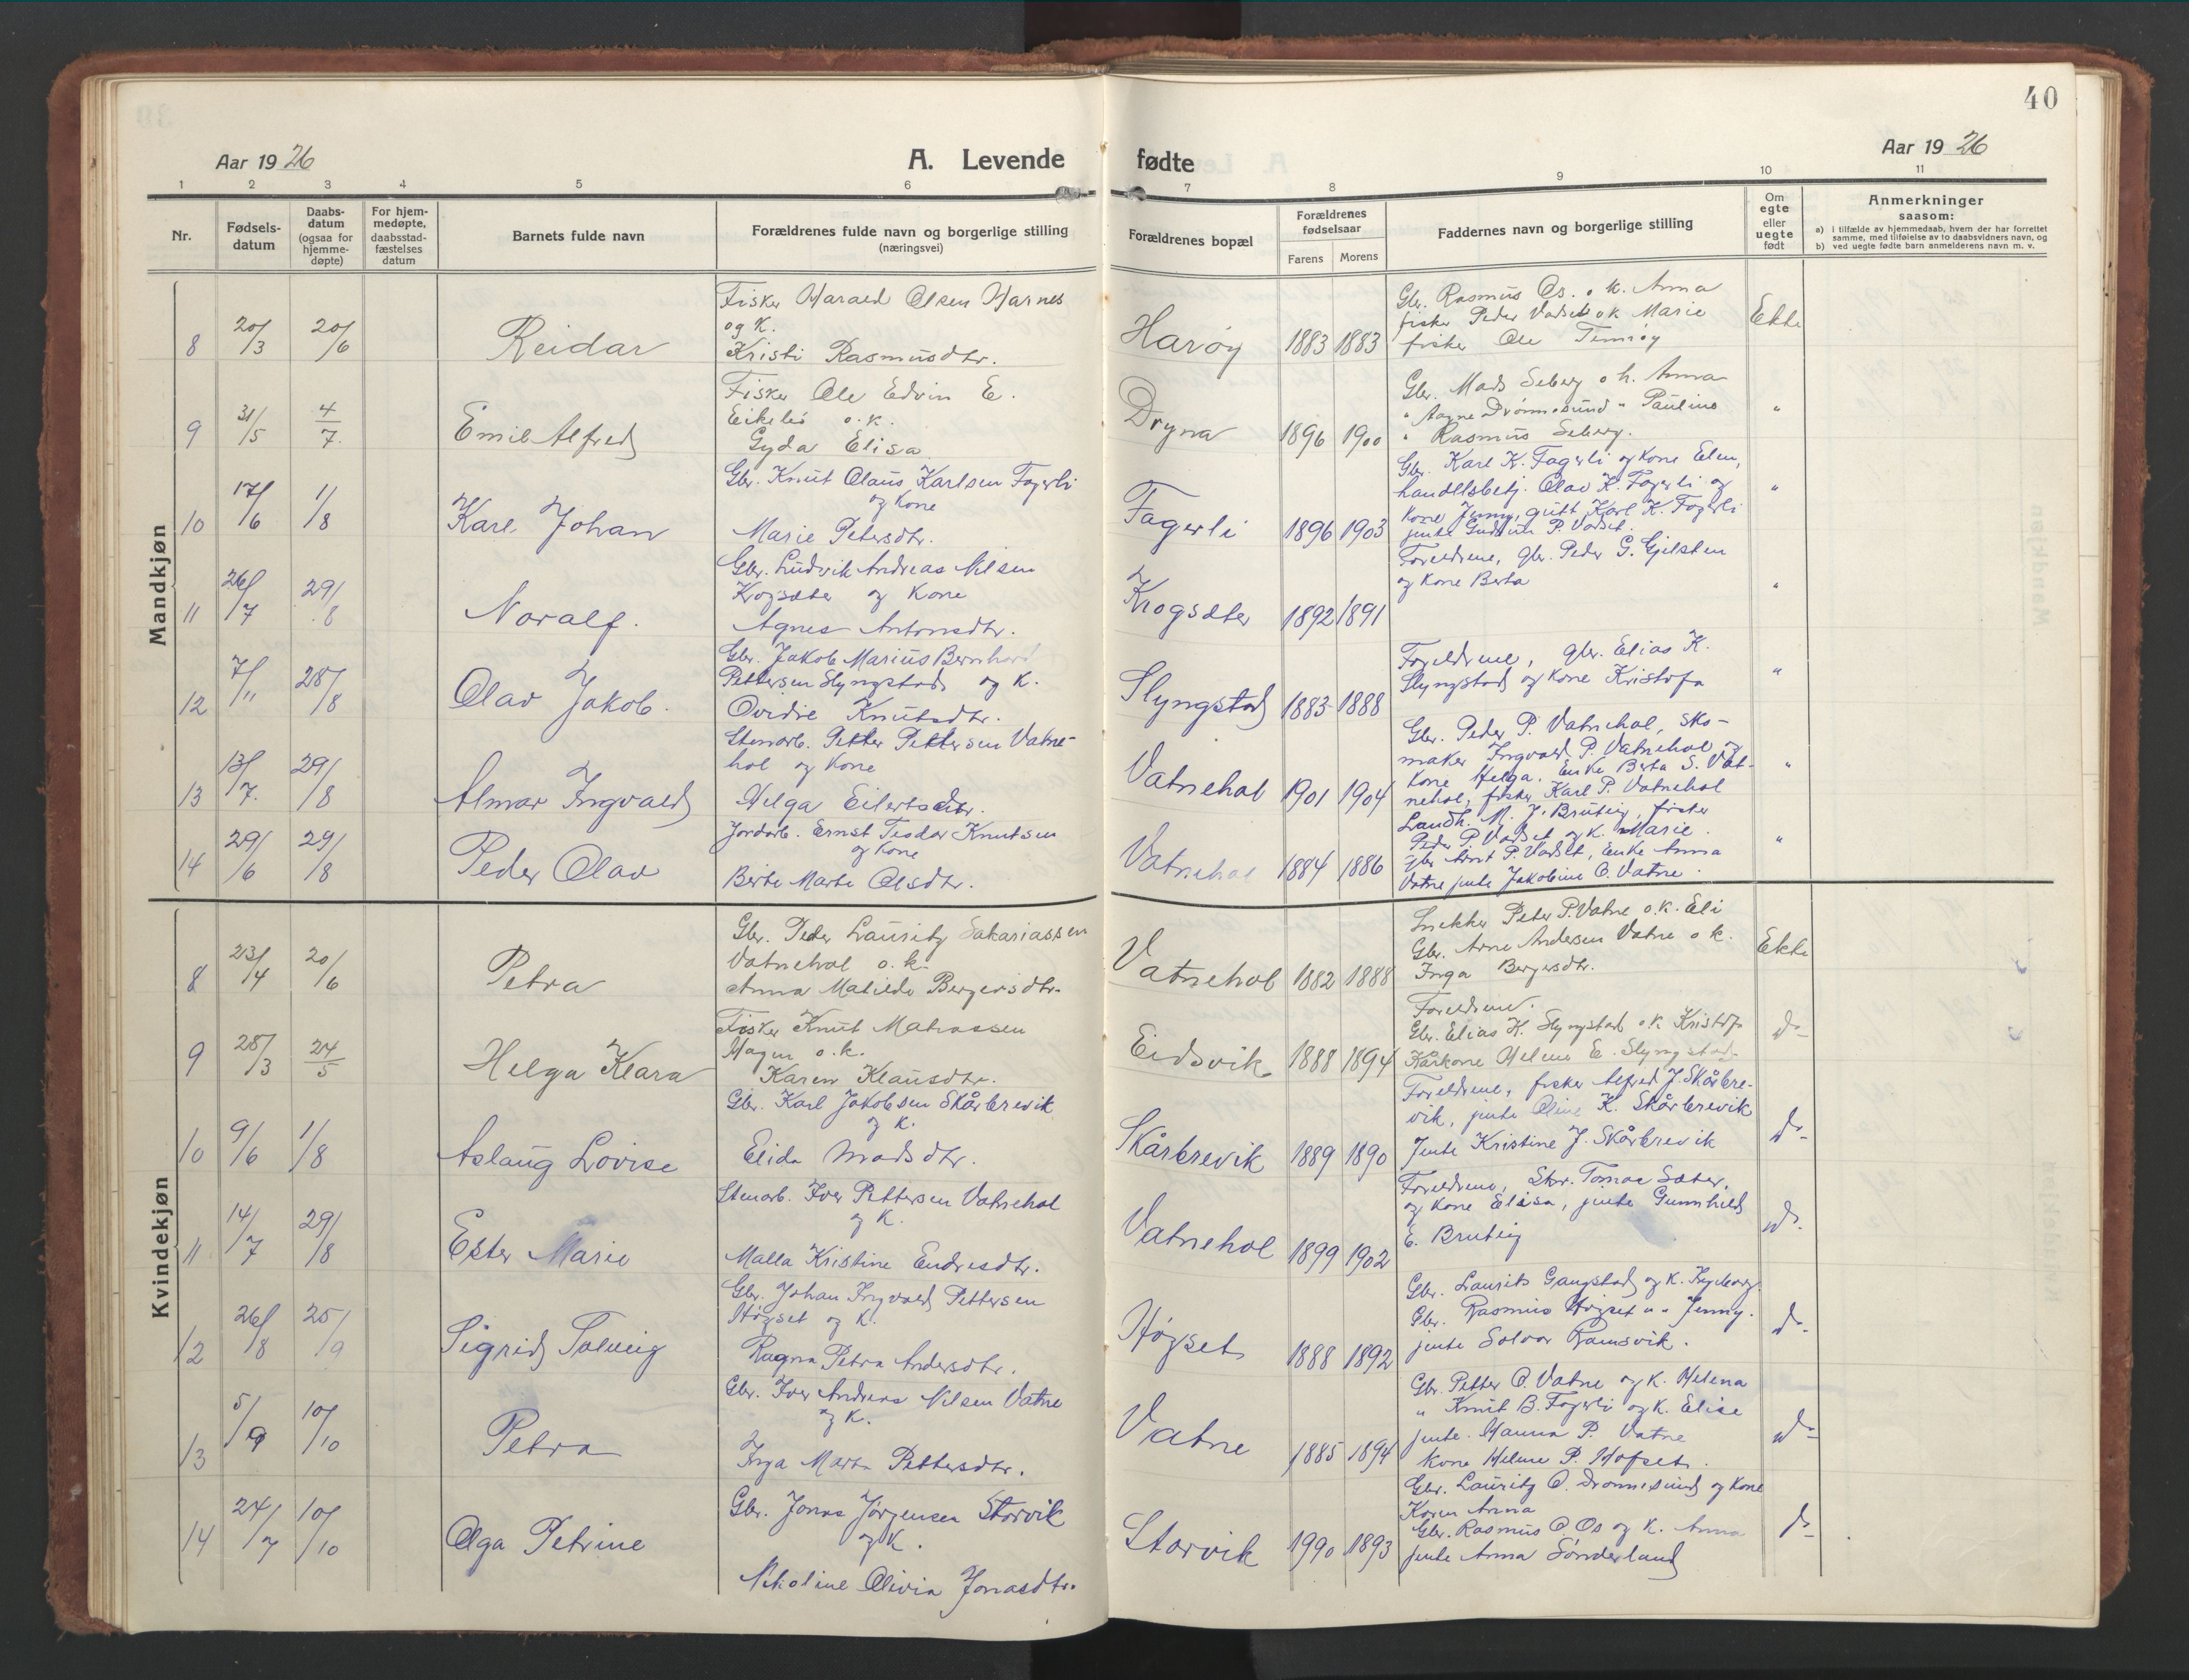 40
Aar 1926
A. Levende
fødte
Aar 1926
1 2 3 4 5 6 7 8 9 10 11
Nr.
Fødsels-
datum
Daabs-
datum
(ogsaa for
hjemme-
døpte)
For hjem-
medøpte,
daabsstad-
fæstelses
datum
Barnets fulde navn
Forældrenes fulde navn og borgerlige stilling
(næringsvei)
Forældrenes bopæl
Forældrenes
fødselsaar
Farens Morens
Faddernes navn og borgerlige stilling
Om
egte
eller
uegte
født
Anmerkninger
saasom:
a) i tilfælde av hjemmedaab, hvem der har forrettet
samme, med tilføielse av to daabsvidners navn, og
b) ved uegte fødte barn anmelderens navn m. v.
Mandkjøn
8 20/3 20/6 Reidar
Fisker Harald Olsen Harnes
og K.
Kristi Rasmusdtr.
Harøy 1883 1883
Gbr. Rasmus Os. o. K. Anna
fisker Peder Vadset o K Marie
fisker Ole
Ekte
9 31/5 4/7. Emil Alfred
Fisker Ole Edvin E.
Eikelis o.K.
Gyda Elisa
Dryna 1896 1900
Gbr. Mads Seberg o k. Anna
" Aagne Drønnesund " Pauline
" Rasmus Seberg.
"
10 17/6 1/8 Karl Johan
Gbr. Knut Olaus Karlsen Fagerli
og Kone
Marie Petersdtr.
Fagerli 1896 1903
Gbr. Karl K. Fagerli og Kone Elen,
handelsbetj. Olav K. Fagerli og
Kone Jenny, gutt Karl K. Fagerli
jente Gudrun P. Vadset.
"
11 26/7 29/8 Noralf.
Gbr. Ludvik Andreas Nilsen
Krogsæter og Kone
Agnes Antonsdtr.
Krogsæter 1892 1891
Foreldrene, gbr. Peder G. Gjelsten
og Kone Berta
"
12 7/11 28/8 Olav Jakob.
Gbr. Jakob Marius Bernhard
Pettersen Slyngstad og K.
Ovidie Knutsdtr.
Slyngstad 1883 1888
Foreldrene, gbr. Elias K.
Slyngstad og Kone Kristofa
"
13 13/7. 29/8 Almar Ingvald
Stenarb. Petter Pettersen Vatne-
hol og Kone
Helga Eilertsdtr.
Vatnehol 1901 1904
Gbr. Peder P. Vatnehol, sko-
maker Ingvald P. Vatnehol og
Kone Helga. Enke Berta S. Vat-
nehol, fisker Karl P. Vatnehol
"
14 29/6 29/8 Peder Olav
Jordarb. Ernst Teodor Knutsen
og Kone
Berte Marte Olsdtr.
Vatnehol 1884 1886
Landh. M. J. Bruteig, fisker
Peder P. Vadset og K. Marie.
gbr Arnt P. Vadset, Enke Anna
Vatne jente Jakobine O. Vatne.
"
Kvindekjøn
8 23/4 20/6 Petra
Gbr. Peder Lauritz Sakariassen
Vatnehol o. k.
Anna Matilde Bergersdtr.
Vatnehol 1882 1888
Snekker Peter P. Vatne o. K. Eli
Gbr. Arne Andersen Vatne o k.
Inga Bergersdtr.
Ekte
9 28/3 24/5 Helga Klara
Fisker Knut Matiassen
Magen o. k.
Karen Klausdtr.
Eidsvik 1888 1894
Foreldrene.
Gbr. Elias K. Slyngstad o K Kristofa
Kårkone Helene E. Slyngstad
do
10 9/6 1/8 Aslaug Lovise
Gbr. Karl Jakobsen Skårbrevik
og K.
Elida Madsdtr.
Skårbrevik 1889 1890
Foreldrene, fisker Alfred J. Skårbre-
vik, jente Oline K. Skårbrevik
Jente Kristine J. Skårbrevik
do
11 14/7 29/8 Ester Marie
Stenarb. Iver Pettersen Vatnehol
og K.
Malla Kristine Endresdtr.
Vatnehol 1899 1902
Foreldrene, Skr. Tomas Sæter,
og Kone Elisa, jente Gunnhild
E. Bruteig
do
12 26/8 25/9 Sigrid Solveig
Gbr. Johan Ingvald Pettersen
Høgset og K.
Ragna Petra Andersdtr.
Høgset 1888 1892
Gbr. Laurits Gangstad og K. Ingeborg.
Gbr. Rasmus Høgset " " Jenny.
jente Solvor Ramsvik.
do
13 5/9 10/10 Petra
Gbr. Iver Andreas Nilsen Vatne
og K.
Inga Marta Pettersdtr.
Vatne 1885 1894
Gbr. Petter O. Vatne og K. Helena
" Knut B. Fagerli og K. Elise
jente. Hanna P. Vatne
Kone Helene P. Hofset.
do
14 24/7 10/10 Olga Petrine
Gbr. Jonas Jørgensen Storvik
og K.
Nikoline Olivia Jonasdtr.
Storvik 1990 1893
Gbr. Lauritz O. Drønnesund og Kone
Karen Anna
Gbr. Rasmus O. Os og K. Anna
jente Anna Sønderland
do